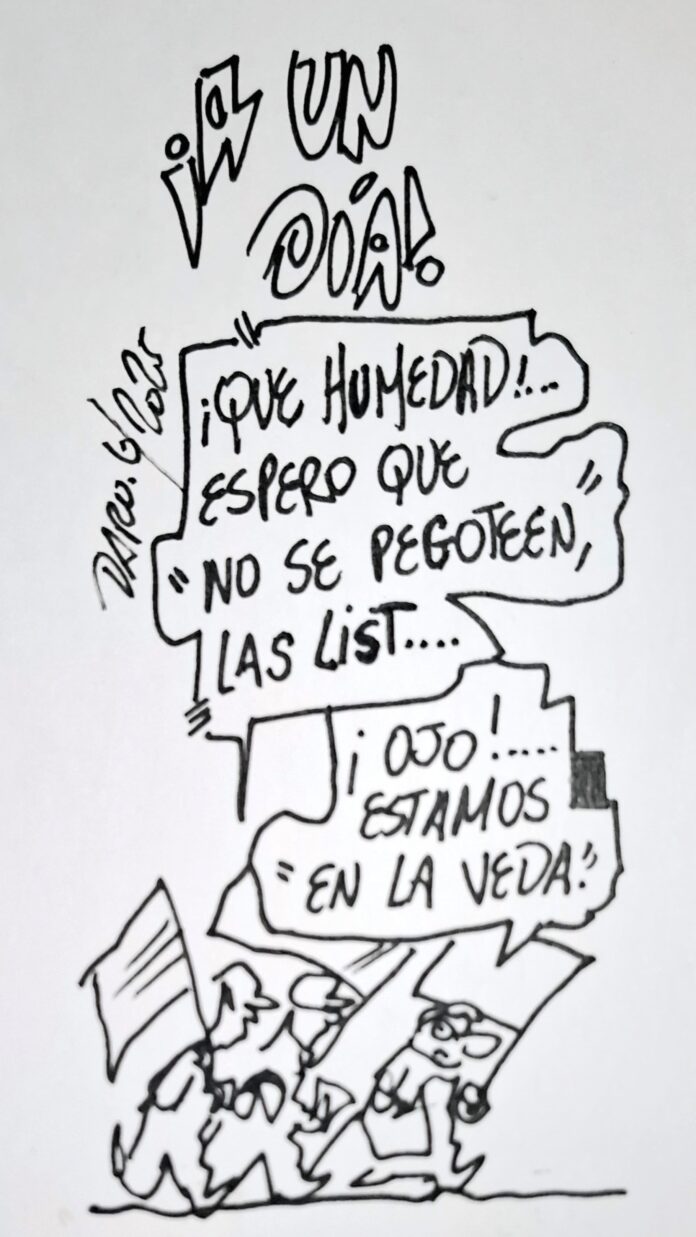 ¡A UN
DÍA!
¡QUE HUMEDAD!...
ESPERO QUE
"NO SE PEGOTEEN,"
LAS LIST....
¡OJO!.....
ESTAMOS
"EN LA VEDA."